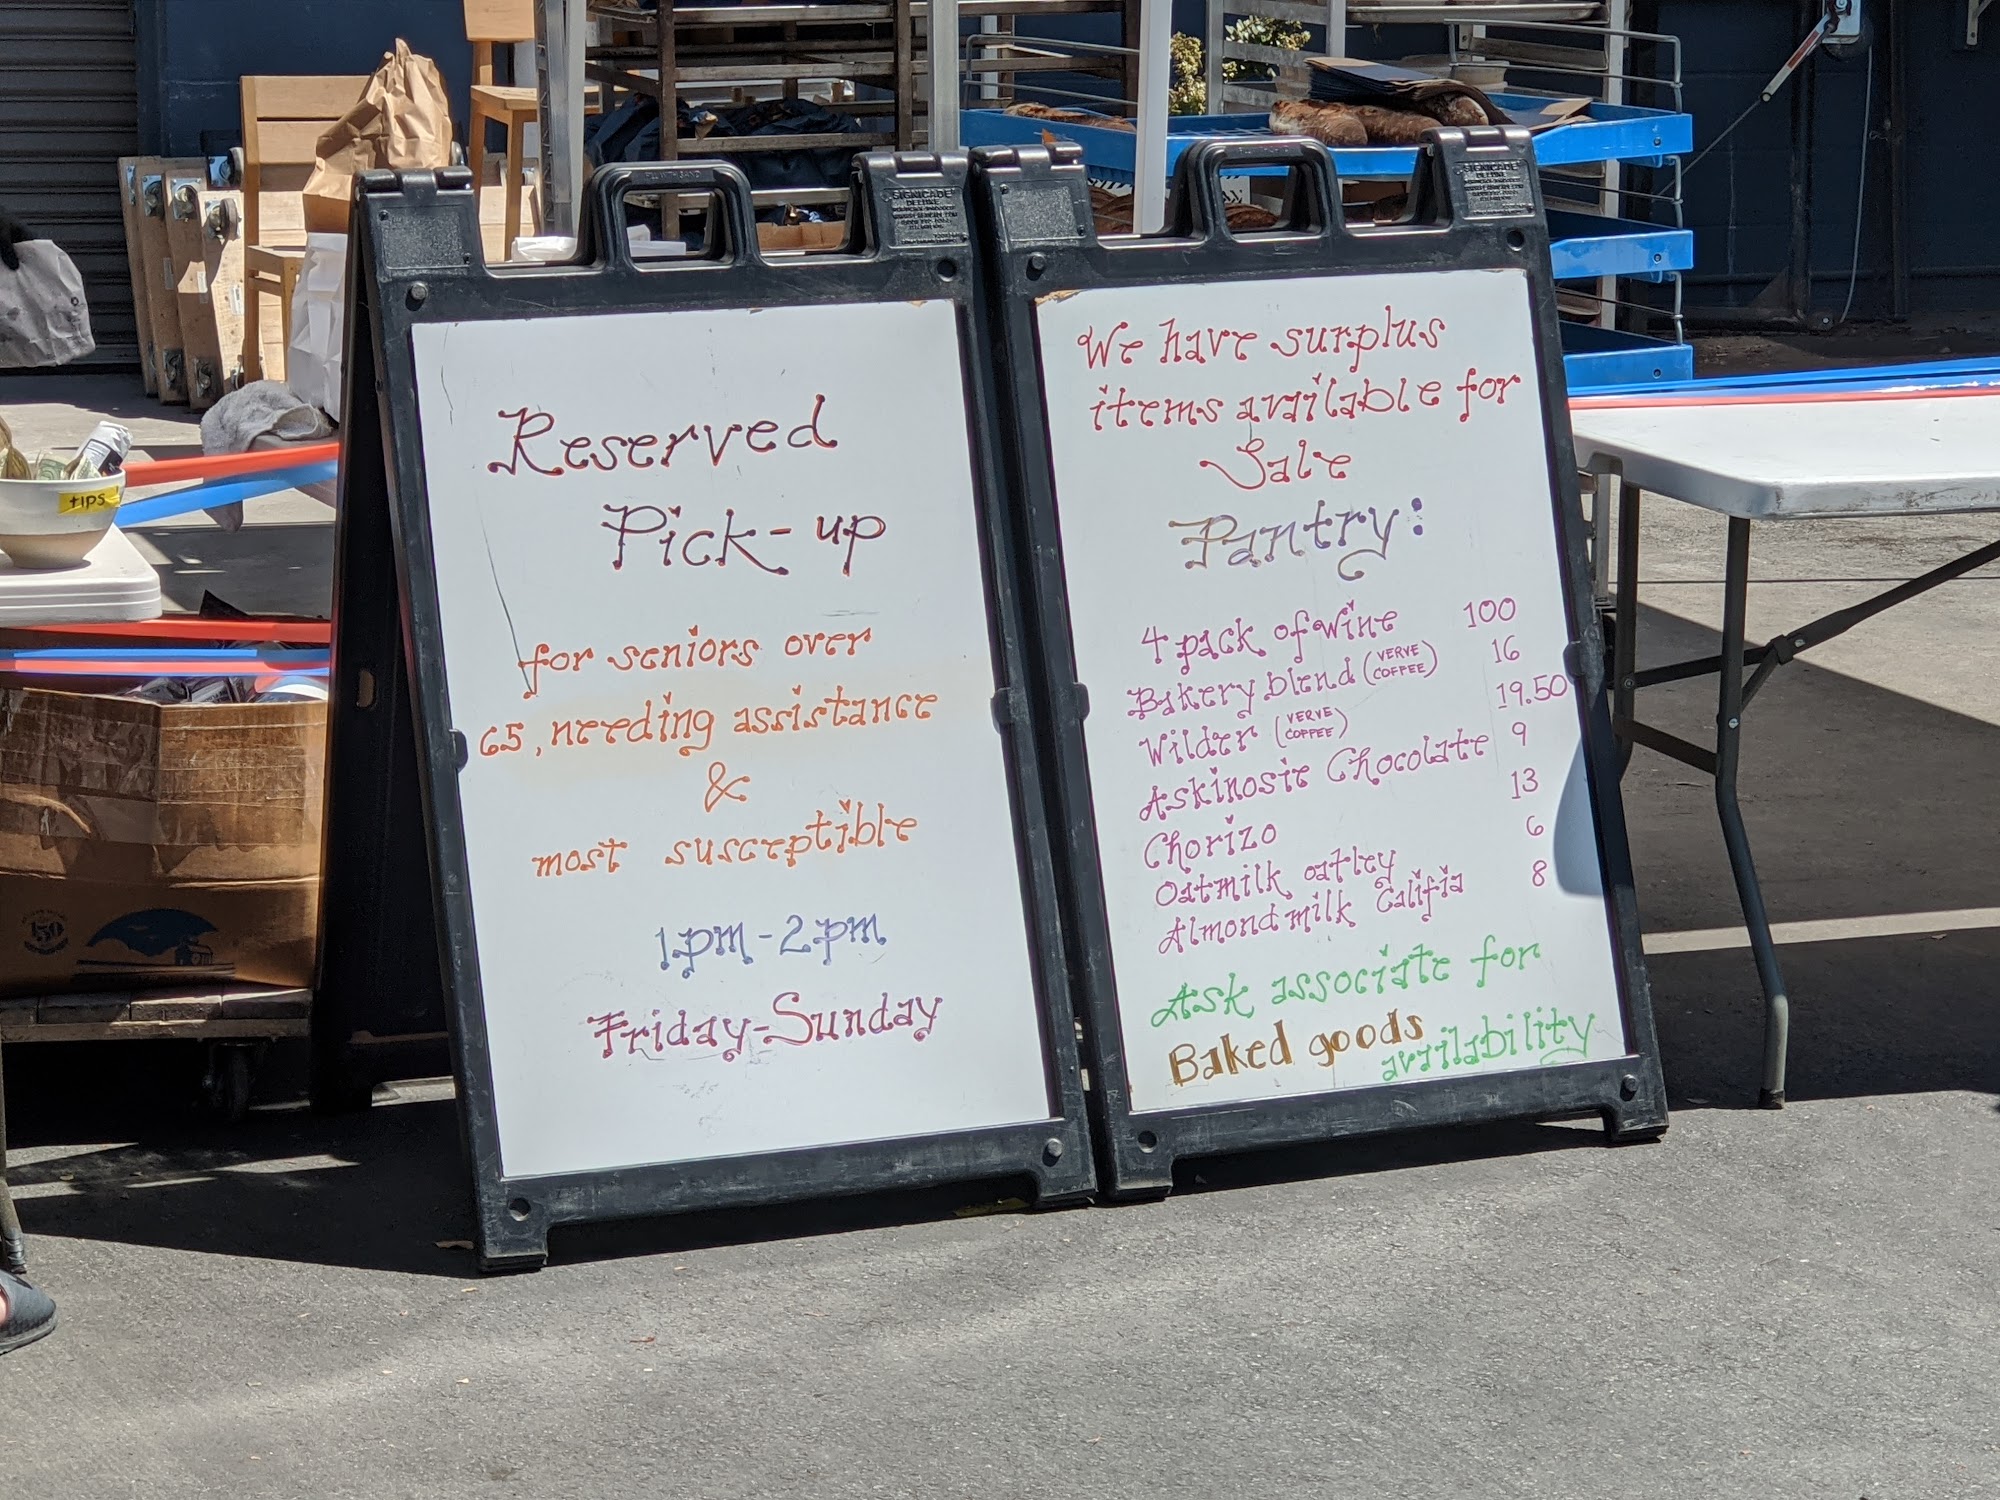 Reserved
Pick-up
for seniors over
65, needing assistance
&
most susceptible
1pm-2pm
Friday-Sunday
We have surplus
items available for
Sale
Pantry:
4 pack of wine 100
Bakery blend (VERVE COFFEE) 16
Wilder (VERVE COFFEE) 19.50
Askinosie Chocolate 9
Chorizo 13
Oatmilk oatley 6
Almondmilk Califia 8
Ask associate for
Baked goods availability
tips
SIGNICADE
DELUXE
FILL WITH SAND
150